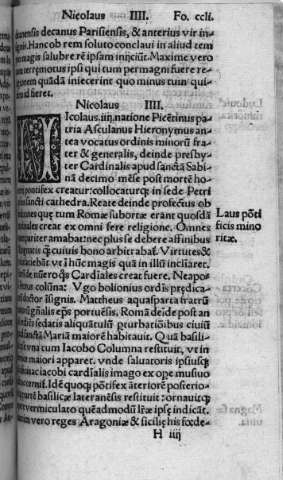 Nicolaus IIII. Fo. ccli.
danensis decanus Parisiensis, & anterius vir in-
ignis. Hanc ob rem soluto conclaui in aliud tem
magis salubre rē ipsam inijciūt. Maxime vero
remotus ipsi qui tum permagni fuere re-
rem quadā iniecerint quo minus tum qui-
id fieret.
Nicolaus IIII.
Icolaus.iiij.natione Picētinus pa
tria Asculanus Hieronymus an-
tea vocatus ordinis minorū fra-
ter & generalis, deinde presby-
ter Cardinalis apud sanctā Sabi-
nā decimo mēse post mortē ho-
pontifex creatur: collocaturq̃ in sede Petri
sancti cathedra. Reate deinde profectus ob
ones que tum Romæ subortæ erant quosdā
inales creat ex omni fere religione. Omnes
pariter amabat: nec plus se debere affinibus
is q̃ cuiuis bono arbitrabat̃. Virtutes &
Laus pōti
ficis mino
ritæ.
Cardīales creat fuere. Neapo
nus colūna: Vgo bolionius ordīs prędica-
doctor īsignis. Mattheus aquasparta fratrū
portuēsis. Romā deīde post an
sedatis aliquātulū perturbatiōibus ciuiū
sanctā Mariā maiorē habitauit. Quā basili-
vna cum Iacobo Columna restituit, vt in
maiori apparet. vnde saluatoris ipsiusq̃
iacobi cardīalis imago ex ope musiuo
cernit̃. Idē quoq̃ pōtifex āteriorē posterio-
partē basilicæ lateranēsis restituit: ornauitq̃
vermiculato quēadmodū lr̃æ ipsę indicāt.
vero reges Aragoniæ & sicilię his fœde-
H iiij